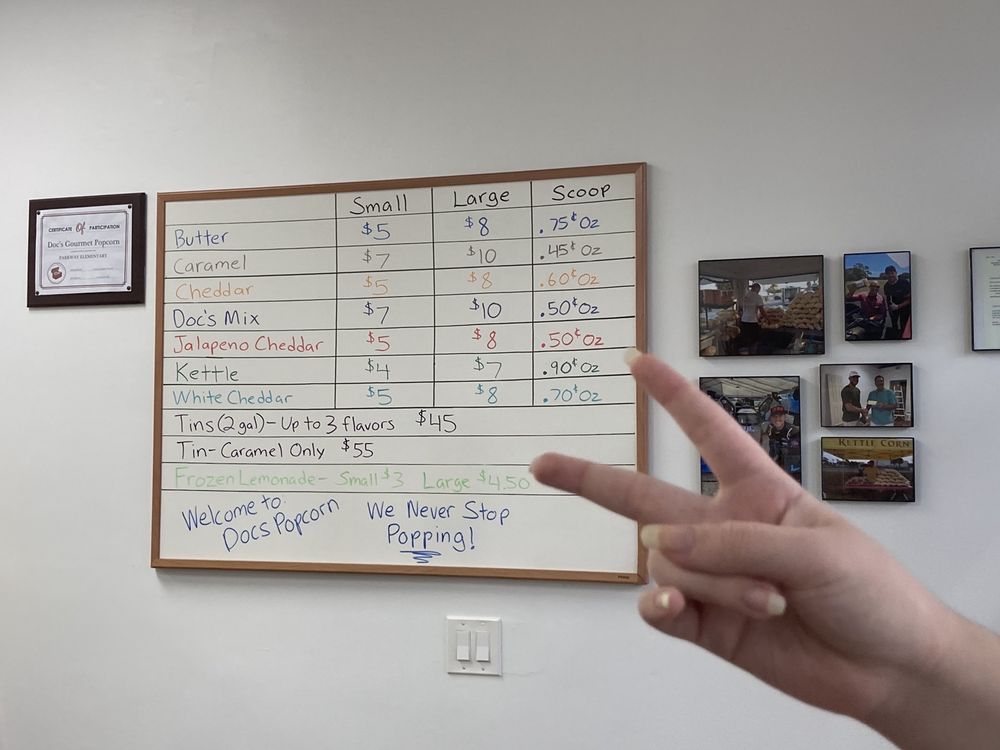 CERTIFICATE Of PARTICIPATION
Doc's Gourmet Popcorn
PARKWAY ELEMENTARY
Small Large Scoop
Butter $5 $8 .75¢Oz
Caramel $7 $10 .45¢Oz
Cheddar $5 $8 .60¢Oz
Doc's Mix $7 $10 .50¢Oz
Jalapeno Cheddar $5 $8 .50¢Oz
Kettle $4 $7 .90¢Oz
White Cheddar $5 $8 .70¢Oz
Tins (2 gal) - Up to 3 flavors $45
Tin - Caramel Only $55
Frozen Lemonade - Small $3 Large $4.50
Welcome to
Docs Popcorn
We Never Stop
Popping!
KETTLE CORN